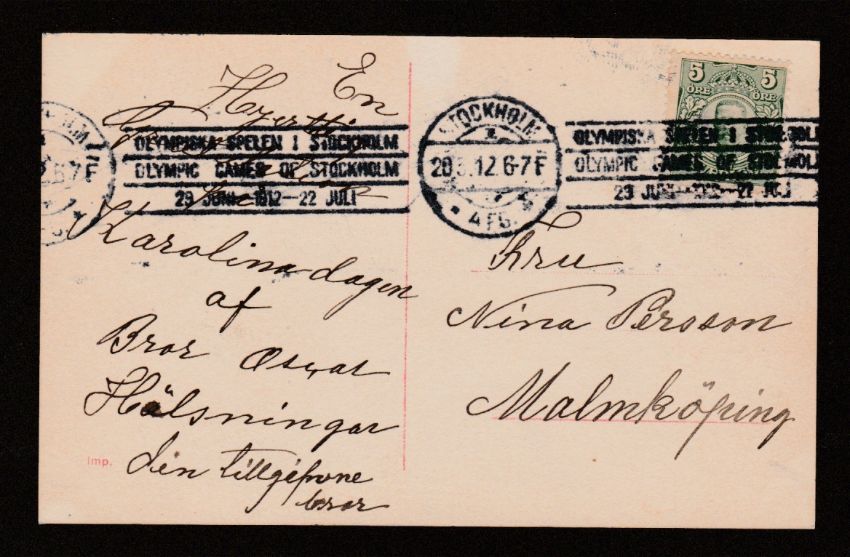 En
Hjertlig
OLYMPISKA SPELEN I STOCKHOLM
OLYMPIC GAMES OF STOCKHOLM
29 JUNI—1912—22 JULI
Karolinadagen
af
Bror Oscar
Hälsningar
din tillgifvne
bror
Imp.
STOCKHOLM
20.3.12.6-7F
4 FG.
5 5
ÖRE ÖRE
OLYMPISKA SPELEN I STOCKHOLM
OLYMPIC GAMES OF STOCKHOLM
29 JUNI—1912—22 JULI
Fru
Nina Persson
Malmköping